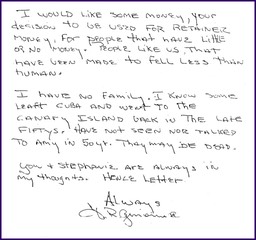 I WOULD LIKE SOME MONEY, YOUR
DECISION TO BE USED FOR RETAINER
MONEY. FOR PEOPLE THAT HAVE LITTLE
OR NO MONEY. PEOPLE LIKE US THAT
HAVE BEEN MADE TO FELL LESS THAN
HUMAN.
I HAVE NO FAMILY. I KNOW SOME
LEAFT CUBA AND WENT TO THE
CANARY ISLAND BACK IN THE LATE
FIFTYS. HAVE NOT SEEN NOR TALKED
TO AMY IN 50YR. THEY MAY BE DEAD.
YOU & STEPHANIE ARE ALWAYS IN
MY THOUGHTS. HENCE LETTER
Always